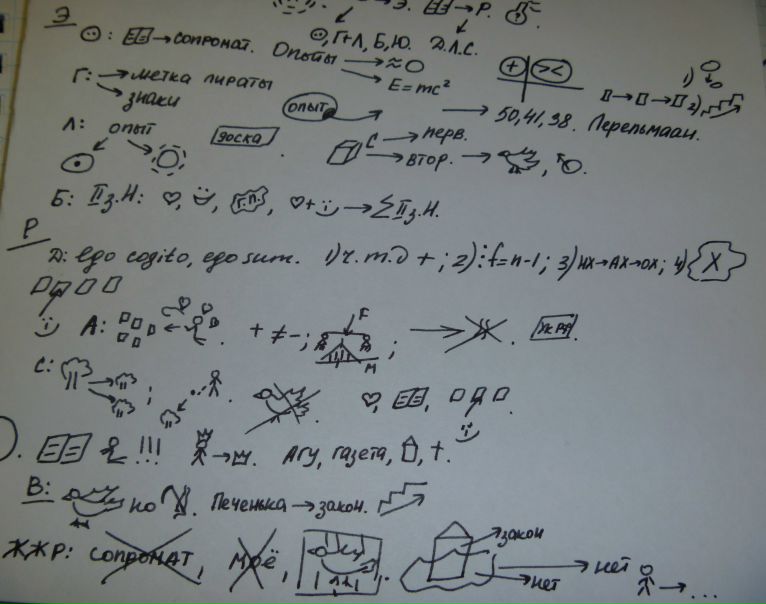 Э. → Р.
Э
: → сопромат. , Г+Л, Б, Ю. Д.Л.С.
Опыты → ≈
→ E=mc²
Г: → метка пираты
→ знаки
+ ><
1)
опыт → 50, 41, 38. Перельмаан. 2)
Л: опыт доска . С → перв.
→ втор. → ,
Б: II з.Н: ♡, , г.п., ♡+ → Σ II з.Н.
Р
Д: ego cogito, ego sum. 1) ч.т.д +; 2) f=n-1; 3) НХ→АХ→ОХ; 4) X
А: . + ≠ -; F M ; → . УК РФ .
С: ; . ♡, , .
. !!! → . АГУ, газета, , †.
В: но . Печенька → закон.
ЖЖР: сопромат, моё, , . закон
нет → нет → ...